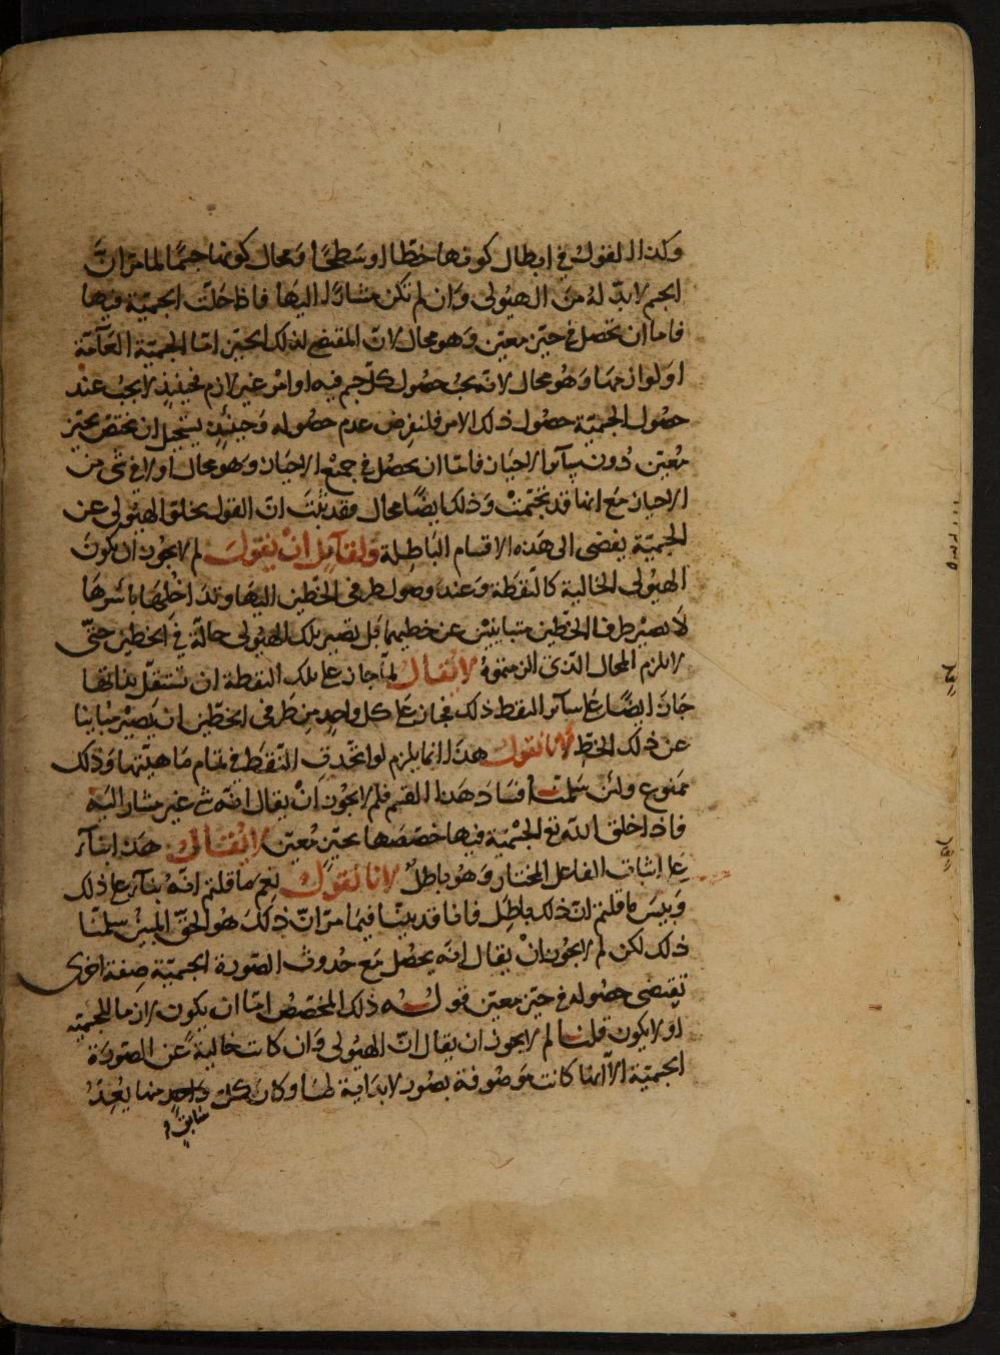 وكذا القول في ابطال كونها خطا او سطحا ومحال كونها جسما لما مر ان
الجسم لا بد له من الهيولى وان لم تكن مشارا اليها فاذا حلت الجسمية فيها
فاما ان تحصل في حيز معين وهو محال لان المقتضي لذلك الحيز اما الجسمية العامة
او لوازمها وهو محال لانه يجب حصول كل جسم فيه او امر غير لازم فحينئذ لا يجب عند
حصول الجسمية حصول ذلك الامر فلنفرض عدم حصوله وحينئذ يستحيل ان يختص بحيز
معين دون سآئر الاحياز فاما ان يحصل في جميع الاحياز وهو محال او لا في شى من
الاحياز مع انها قد تجسمت وذلك ايضا محال فقد ثبت ان القول بخلو الهيولى عن
الجسمية يفضى الى هذه الاقسام الباطلة ولقآئل ان يقول لم لا يجوز ان تكون
الهيولى الخالية كالنقطة وعند وصول طرفى الخطين اليها وتداخلها باسرها
لا يصير طرفا الخطين متباينين عن خطيهما بل تصير تلك الهيولى حالة في الخطين حتى
لا يلزم المحال الذى الزمتموه لا يقال لما جاز على تلك النقطة ان تستقل بذاتها
جاز ايضا على سآئر النقط ذلك فجاز على كل واحد من طرفى الخطين ان يصير مباينا
عن ذلك الخط لانا نقول هذا انما يلزم لو اتحدت النقط في تمام ماهيتها وذلك
ممنوع ولئن سلمنا فساد هذا القسم فلم لا يجوز ان يقال انه شى غير مشار اليه
فاذا خلق الله تع الجسمية فيها خصصها بحيز معين لا يقال هذا بنآء
على اثبات الفاعل المختار وهو باطل لانا نقول نعم ما قلتم انه بنآء على ذلك
وبيس ما قلتم ان ذلك باطل فانا قد بينا فيما مر ان ذلك هو الحق المبين سلمنا
ذلك لكن لم لا يجوز ان يقال انه يحصل مع حدوث الصورة الجسمية صفة اخرى
تقتضى حصوله في حيز معين قوله ذلك المخصص اما ان يكون لازما للجسمية
او لا يكون قلنا لم لا يجوز ان يقال ان الهيولى وان كانت خالية عن الصورة
الجسمية الا انها كانت موصوفة بصور لا بداية لها وكان كل واحد منها يعد